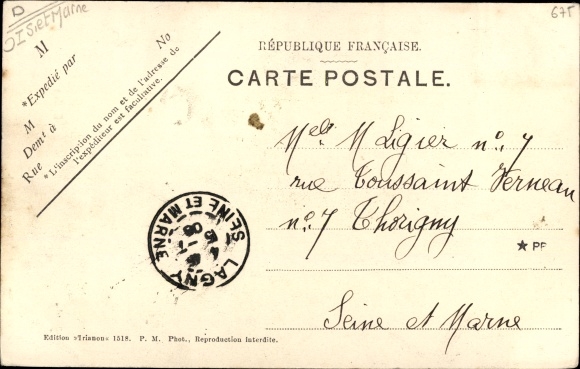 D
OISetMarne
675
M
No
*Expédié par
M
Demᵗ à
Rue
* L'inscription du nom et de l'adresse de
l'expéditeur est facultative.
RÉPUBLIQUE FRANÇAISE.
CARTE POSTALE.
Melle M Ligier nº 7
rue Toussaint Verneau
nº 7 Thorigny
★ PF
Seine et Marne
LAGNY
SEINE ET MARNE
Edition »Trianon« 1518. P. M. Phot., Reproduction interdite.